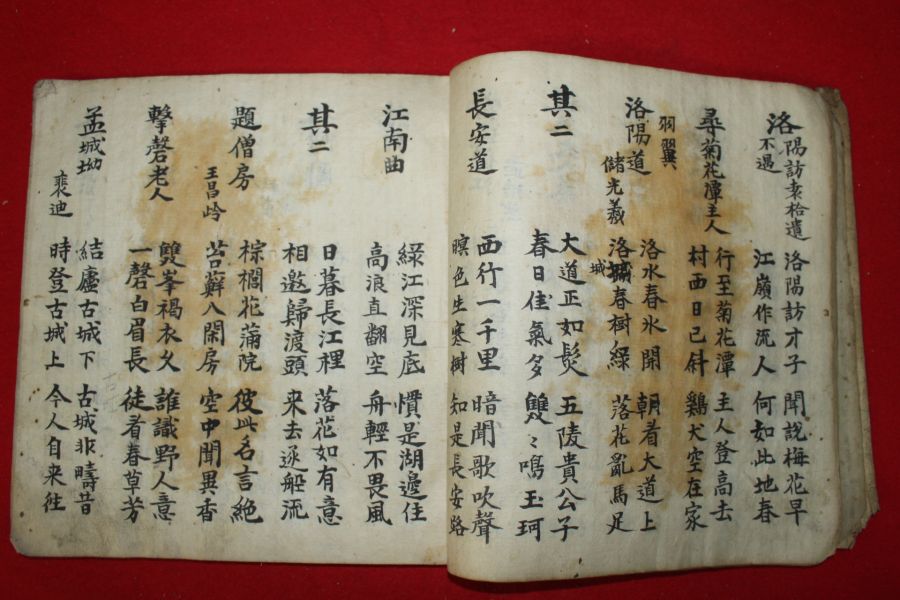 洛陽訪袁拾遺
不遇
洛陽訪才子 聞說梅花早
江嶺作流人 何如此地春
尋菊花潭主人
行至菊花潭 主人登高去
村西日已斜 鷄犬空在家
羽翼
洛陽道
儲光羲
洛水春氷開 朝看大道上
洛城春樹綠 落花亂馬足
其二
大道正如髮 五陵貴公子
春日佳氣多 雙〻鳴玉珂
長安道
西行一千里 暗聞歌吹聲
暝色生寒樹 知是長安路
江南曲
綠江深見底 慣是湖邊住
高浪直翻空 舟輕不畏風
其二
日暮長江裡 落花如有意
相邀歸渡頭 来去逐船流
題僧房
王昌岭
棕櫚花蒲院 彼此名言絶
苔蘚入閑房 空中聞異香
擊磬老人
雙峯褐衣久 誰識野人意
一磬白眉長 徒看春草芳
孟城坳
裴迪
結廬古城下 古城非疇昔
時登古城上 今人自来往